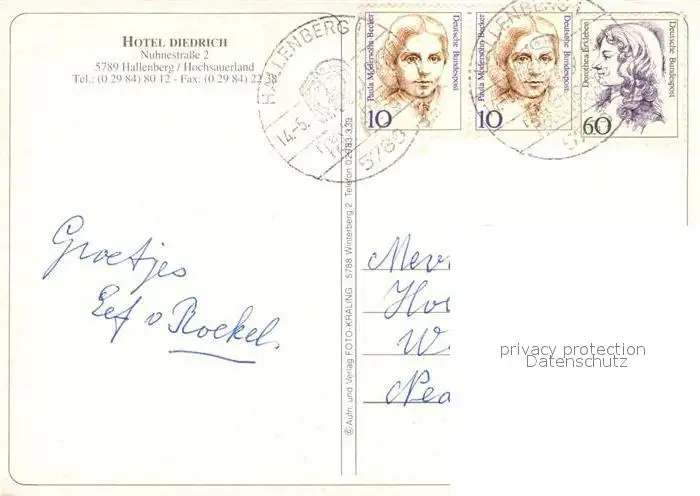 HOTEL DIEDRICH
Nuhnestraße 2
5789 Hallenberg / Hochsauerland
Tel.: (0 29 84) 80 12 - Fax: (0 29 84) 22 38
HALLENBERG
14.-5.
5789
Paula Modersohn-Becker
Deutsche Bundespost
10
Paula Modersohn-Becker
Deutsche Bundespost
10
Dorothea Erxleben
Deutsche Bundespost
60
HALLENBERG
Groetjes
Eef v Roekel.
© Aufn. und Verlag FOTO-KRALING 5788 Winterberg 2 Telefon
privacy protection
Datenschutz